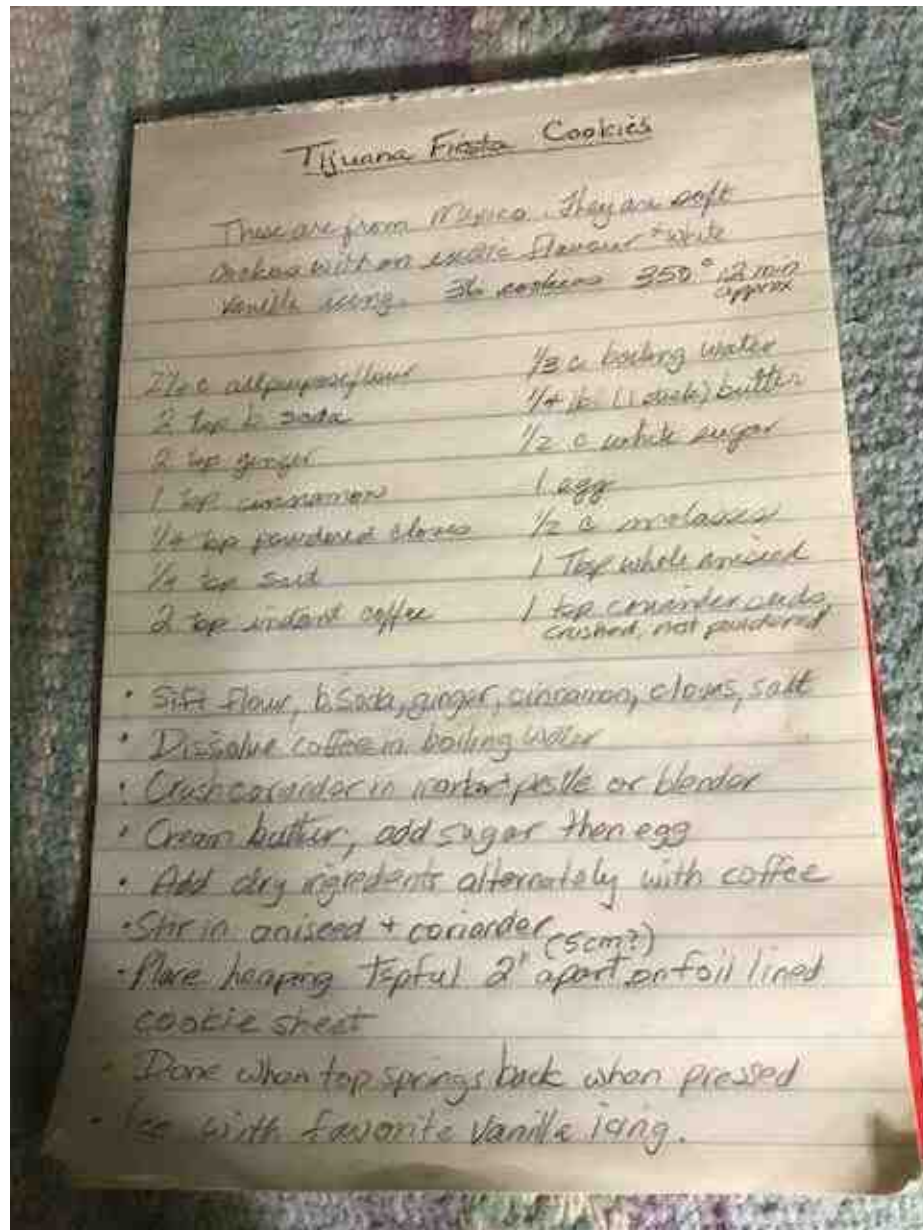 Tijuana Fiesta Cookies
These are from Mexico. They are soft
cookies with an exotic flavour + white
vanilla icing. 36 cookies 350° 12 min
approx
c allpurpose flour
2 tsp b. soda
2 tsp ginger
1 tsp cinnamon
1/4 tsp powdered cloves
1/4 tsp salt
2 tsp instant coffee
1/3 c boiling water
1/4 lb (1 stick) butter
1/2 c white sugar
1 egg
1/2 c molasses
1 Tbsp whole aniseed
1 tsp coriander seeds
crushed, not powdered
• Sift flour, b. soda, ginger, cinnamon, cloves, salt
• Dissolve coffee in boiling water
• Crush coriander in mortar + pestle or blender
• Cream butter, add sugar then egg
• Add dry ingredients alternately with coffee
• Stir in aniseed + coriander
(5cm?)
• Place heaping tspful 2" apart on foil lined
cookie sheet
• Done when top springs back when pressed
• Ice with favorite vanilla icing.